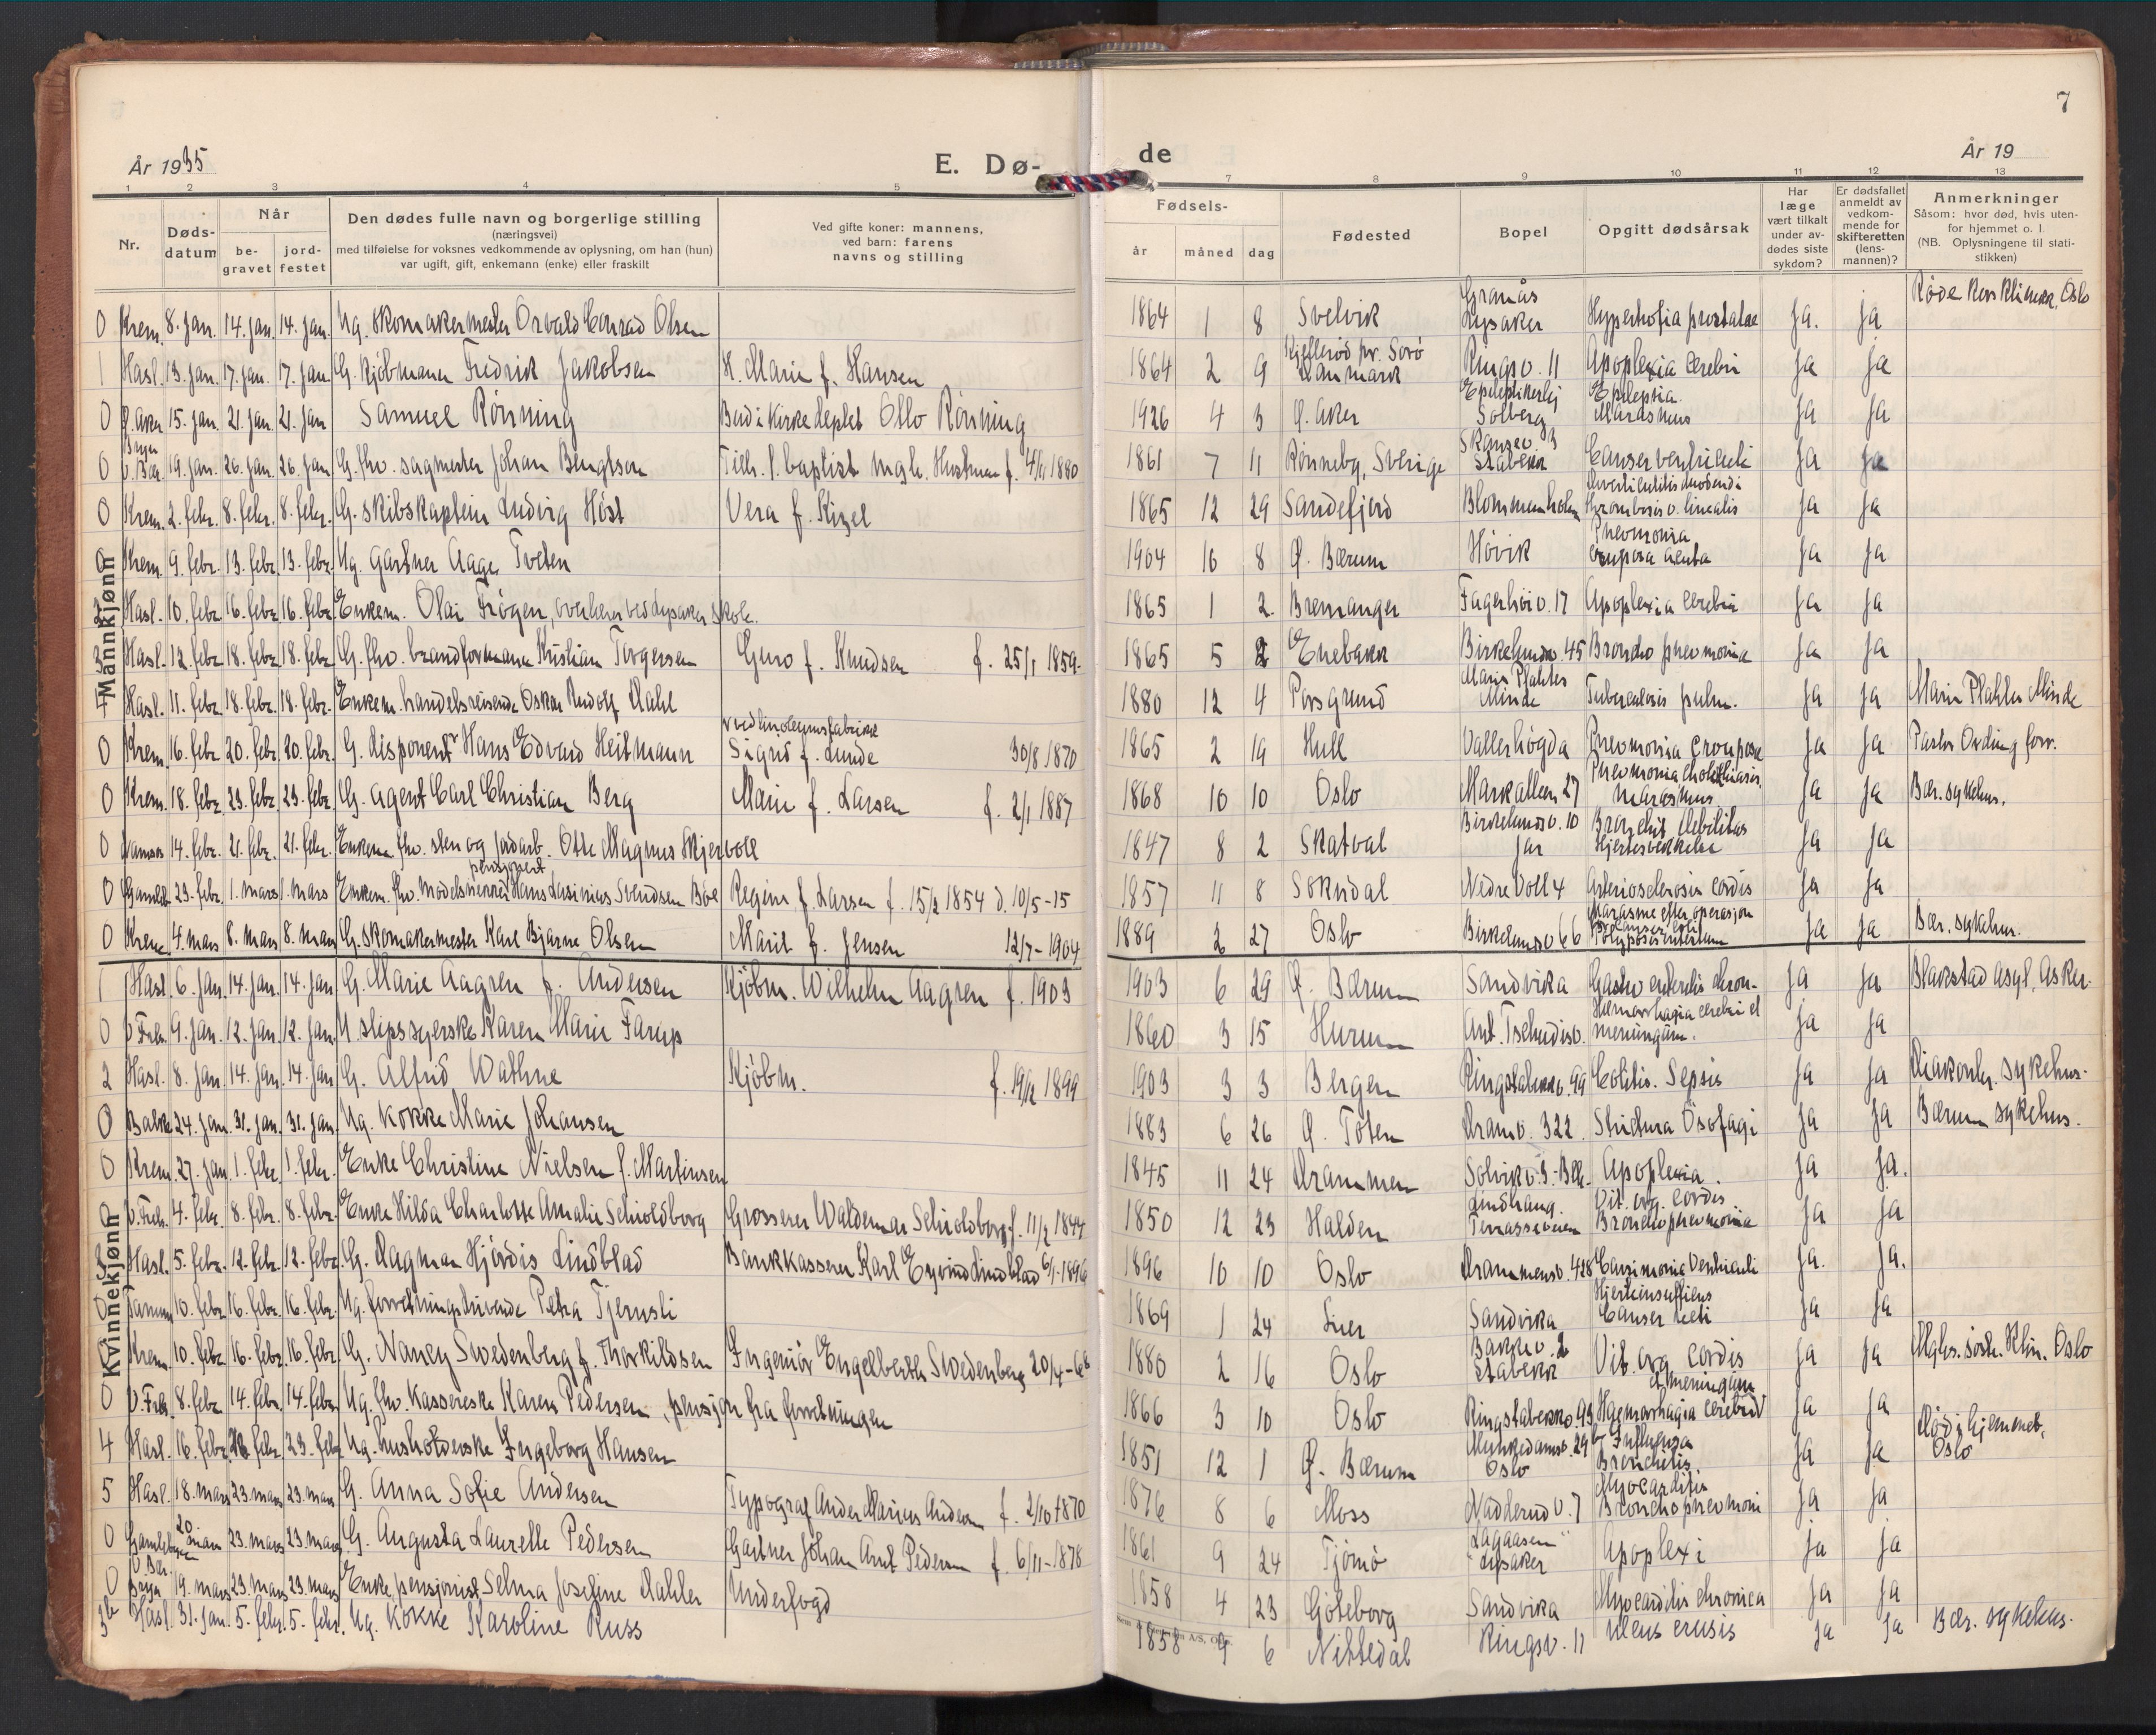 7
År 1935 E. Dø- de År 19
1 2 3 4 5 7 8 9 10 11 12 13
Nr. Dødsdatum Når begravet jordfestet
Den dødes fulle navn og borgerlige stilling
(næringsvei)
med tilføielse for voksnes vedkommende av oplysning, om han (hun)
var ugift, gift, enkemann (enke) eller fraskilt
Ved gifte koner: mannens,
ved barn: farens
navns og stilling
Fødsels- år måned dag
Fødested
Bopel
Opgitt dødsårsak
Har læge vært tilkalt under avdødes siste sykdom?
Er dødsfallet anmeldt av vedkommende for skifteretten (lensmannen)?
Anmerkninger
Såsom: hvor død, hvis utenfor hjemmet o. l.
(NB. Oplysningene til statistikken)
Mannkjønn
0 Krem. 8. jan. 14. jan. 14. jan. Ug. skomakermester Osvald Conrad Olsen 1864 1 8 Svelvik Granås Lysaker Hypertrofia prostatae ja. ja Røde Kors Klinikk, Oslo
1 Hasl. 13. jan. 17. jan. 17. jan. G. kjøbmann Fredrik Jakobsen H. Marie f. Hansen 1864 2 9 pr. Sorø Danmark Ringsv. 11 Apoplexia cerebri ja ja
0 Ø. Aker 15. jan. 21. jan. 21. jan Samuel Rønning Bud i Kirkedeptet Otto Rønning 1926 4 3 Ø. Aker Solberg Epilepsia. Marasmus ja ja
0 Bryn V. Bær. 19. jan. 26. jan. 26. jan G. fhv. sagmester Johan Bengtson Tilh. f. baptist mgh. Hustruen f. 4/11 1880 1861 7 11 Rønneby, Sverige Skansev. 3 Stabekk Cancer ventriculi ja ja
0 Krem. 2. febr. 8. febr. 8. febr. G. skibskaptein Ludvig Höst Vera f. Kizel 1865 12 29 Sandefjord Blommenholm Diverticulitis duodeni Thrombosis v. linealis ja ja
0 Krem. 9. febr. 13. febr. 13. febr. Ug. gartner Aage Tveten 1904 10 8 Ø. Bærum Høvik Pneumonia cruposa acuta ja ja
2 Hasl. 10. febr. 16. febr. 16. febr. Enkem. Olai Frøgen, overlærer ved Lysaker Skole. 1865 1 2. Bremanger Fagerhøiv. 17 Apoplexia cerebri ja ja
3 Hasl. 12. febr. 18. febr. 18. febr. G. fhv. brandformann Kristian Torgersen Guro f. Knudsen f. 25/1 1859. 1865 5 2 Enebakk Birkelundv. 45 Broncho pneumonia ja ja
4 Hasl. 11. febr. 18. febr. 18. febr. Enkem. handelsreisende Oskar Rudolf Dahl 1880 12 4 Porsgrund Marie Plahtes Minde Tuberculosis pulm. ja ja Marie Plahtes Minde
0 Krem. 16. febr. 20. febr. 20. febr. G. disponent Hans Edvard Heitmann ved linoleumsfabrikk Sigrid f. Lunde 30/8 1870 1865 2 19 Hull Vallerhøgda Pneumonia crouposa ja ja Pastor Ording forr.
0 Krem. 18. febr. 23. febr. 23. febr. G. agent Carl Christian Berg Marie f. Larsen f. 2/1 1887 1868 10 10 Oslo Markalleen 27 Pneumonia cholithiasis. marasmus ja ja Bær. sykehus.
0 Namsos 14. febr. 21. febr. 21. febr. Enkem. fhv. sten og jordarb. Otto Magnus Skjervold 1847 8 2 Skatval Birkelundv. 10 Jar Bronchit Debilitas Hjertesvekkelse ja ja
0 Gamleb. 23. febr. 1. mars 1. mars Enkem. fhv. modelsnekker pensjonert Hans Lasinius Svendsen Böe Regine f. Larsen f. 15/2 1854 d. 10/5-15 1857 11 8 Sokndal Nedre Voll 4 Arteriosclerosis cordis ja ja
0 Krem 4. mars 8. mars 8. mars G. skomakermester Karl Bjarne Olsen Marit f. Jensen 12/7-1904 1889 2 27 Oslo Birkelundv 66 Marasme efter operasjon Cancer coli Polyposis intestina ja ja Bær. sykehus.
Kvinnekjønn
1 Hasl. 6. jan. 14. jan. 14. jan G. Marie Aagren f. Andersen Kjøbm. Wilhelm Aagren f. 1903 1903 6 29 Ø. Bærum Sandvika Gastro enteritis chron. ja ja Blakstad asyl, Asker.
0 V. Frels. 9. jan. 12. jan. 12. jan. U slipssyerske Karen Marie Farup 1860 3 15 Hurum Ant. Tschudisv. Hæmorrhagia cerebri et meningum. ja ja
2 Hasl. 8. jan. 14. jan. 14. jan G. Alfrid Wathne Kjøbm. f. 19/2 1899 1903 3 3 Bergen Ringstabekkv. 99 Colitis. Sepsis ja ja Diakonhj. sykehus.
0 Balke 24. jan. 31. jan. 31. jan. Ug. kokke Marie Johansen 1883 6 26 Ø. Toten Dramv. 322. StricturaÖsofagi ja ja Bærum sykehus.
0 Krem. 27. jan 1. febr. 1. febr. Enke Christine Nielsen f. Martinsen 1845 11 24 Drammen Solvikv. 3. Bll. Apoplexia. ja ja.
0 V. Frels. 4. febr. 8. febr. 8. febr. Enke Hilda Charlotte Amalie Schioldborg Grosserer Waldemar Schioldborg f. 11/2 1844 1850 12 23 Halden Lindhaug. Terrasseveien Vit. org. cordis. Bronchopneumonia ja ja
3 Hasl. 5. febr. 12. febr. 12. febr. G. Dagmar Hjördis Lindblad Bankkasserer Karl Eyvind Lindblad 6/1-1896 1896 10 10 Oslo Drammensv. 428 Carsinoma Ventriculi ja. ja.
0 Tanum 10. febr. 16. febr. 16. febr. Ug. forretningsdrivende Petra Tjernsli 1869 1 24 Lier Sandvika Hjerteinsuffiens Cancer recti ja ja
0 Krem. 10. febr. 16. febr. 16. febr. G. Nancy Swedenberg f. Thorkildsen Ingeniør Engelberth Swedenberg 20/4-68 1880 2 16 Oslo Bakkev. 2 Stabekk Vit. org. cordis ja ja Mghs. søstr. Klin. Oslo
0 V. Frels. 8. febr. 14. febr. 14. febr. Ug. fhv. kassererske Karen Pedersen, pensjon fra forretningen 1866 3 10 Oslo Ringstabekkv. 93 Haemorrhagia cerebri et meningum ja ja
4 Hasl. 16. febr. 23. febr. 23. febr. Ug. husholderske Ingeborg Hansen 1851 12 1 Ø. Bærum Munkedamsv. 29 Oslo Influensa Bronchitis. ja ja Död i hjemmet, Oslo
5 Hasl. 18. mars 23. mars 23. mars G. Anna Sofie Andersen Typograf Anders Marius Andersen f. 2/10 1870 1876 8 6 Moss Nadderudv. 7 Myocarditis Bronchopneumoni ja ja
0 Gamlebyen 20. mars 23. mars 23. mars G. Augusta Laurelle Pedersen Gartner Johan Arnt Pedersen f. 6/11-1878 1861 9 24 Tjömö "Lagaasen" Lysaker Apoplexi ja ja
0 V. Bær. Bryn 19. mars 23. mars 23. mars Enke, pensjonist Selma Josefine Dahler Underfogd 1858 4 23 Göteborg Sandvika Myocarditis chronica ja ja
Hasl. 31. jan. 5. febr. 5. febr. Ug. kokke Karoline Russ 1858 9 6 Nittedal Ringsv. 11 Ulcus crusis ja ja Bær. sykehus.